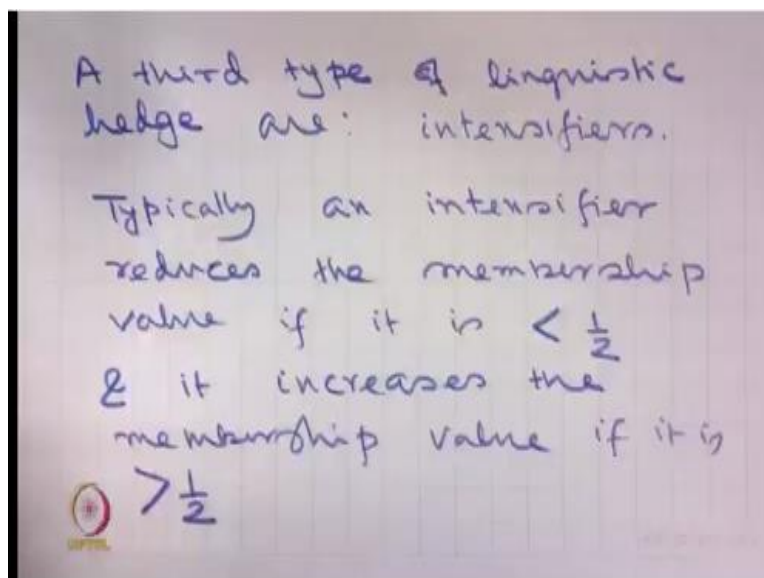 A third type of linguistic
hedge are: intensifiers.
Typically an intensifier
reduces the membership
value if it is < 1/2
& it increases the
membership value if it is
> 1/2
NPTEL